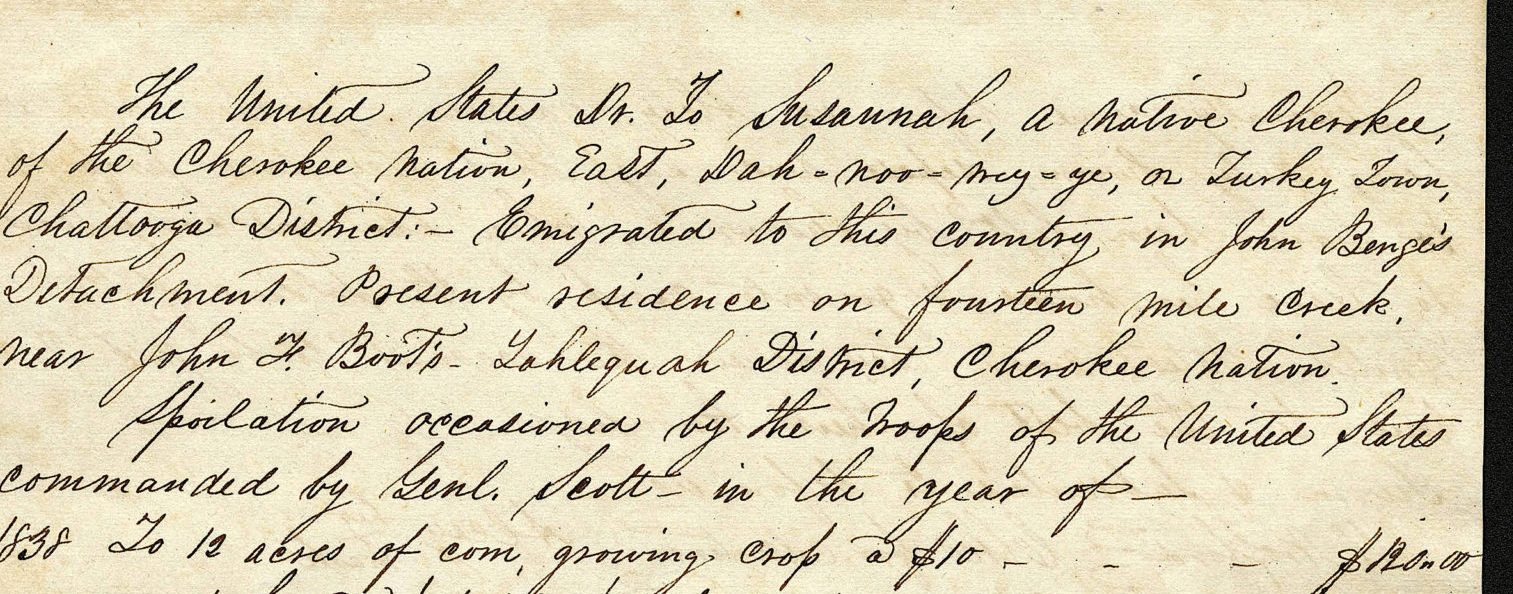 The United States Dr. To Susannah, a native Cherokee,
of the Cherokee Nation, East, Dah=noo=wey=ye, or Turkey Town,
Chattooga District:- Emigrated to this country in John Benge's
Detachment. Present residence on fourteen mile Creek,
near John F. Boot's - Tahlequah District, Cherokee Nation.
Spoilation occasioned by the Troops of the United States
commanded by Genl. Scott - in the year of -
1838 To 12 acres of corn, growing crop a $10 - - - $120.00